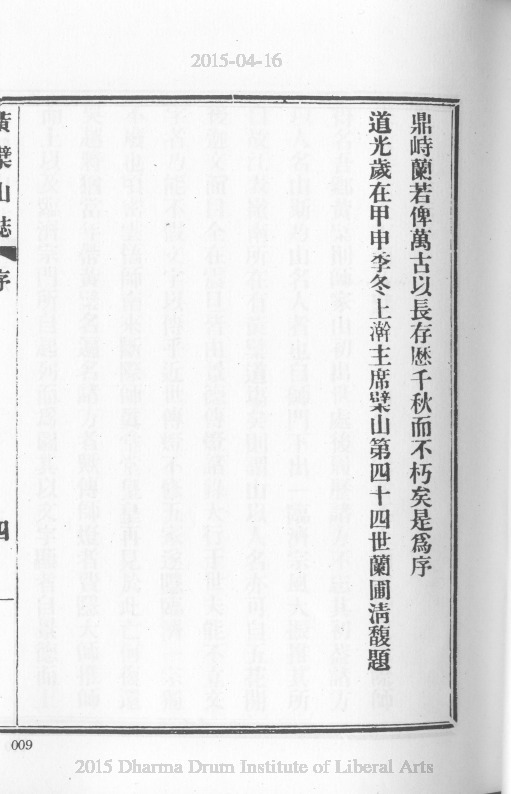 2015-04-16
鼎峙蘭若俾萬古以長存歷千秋而不朽矣是爲序
道光歲在甲申季冬上澣主席檗山第四十四世蘭圃淸馥題
黃檗山誌
序
四
009
2015 Dharma Drum Institute of Liberal Arts